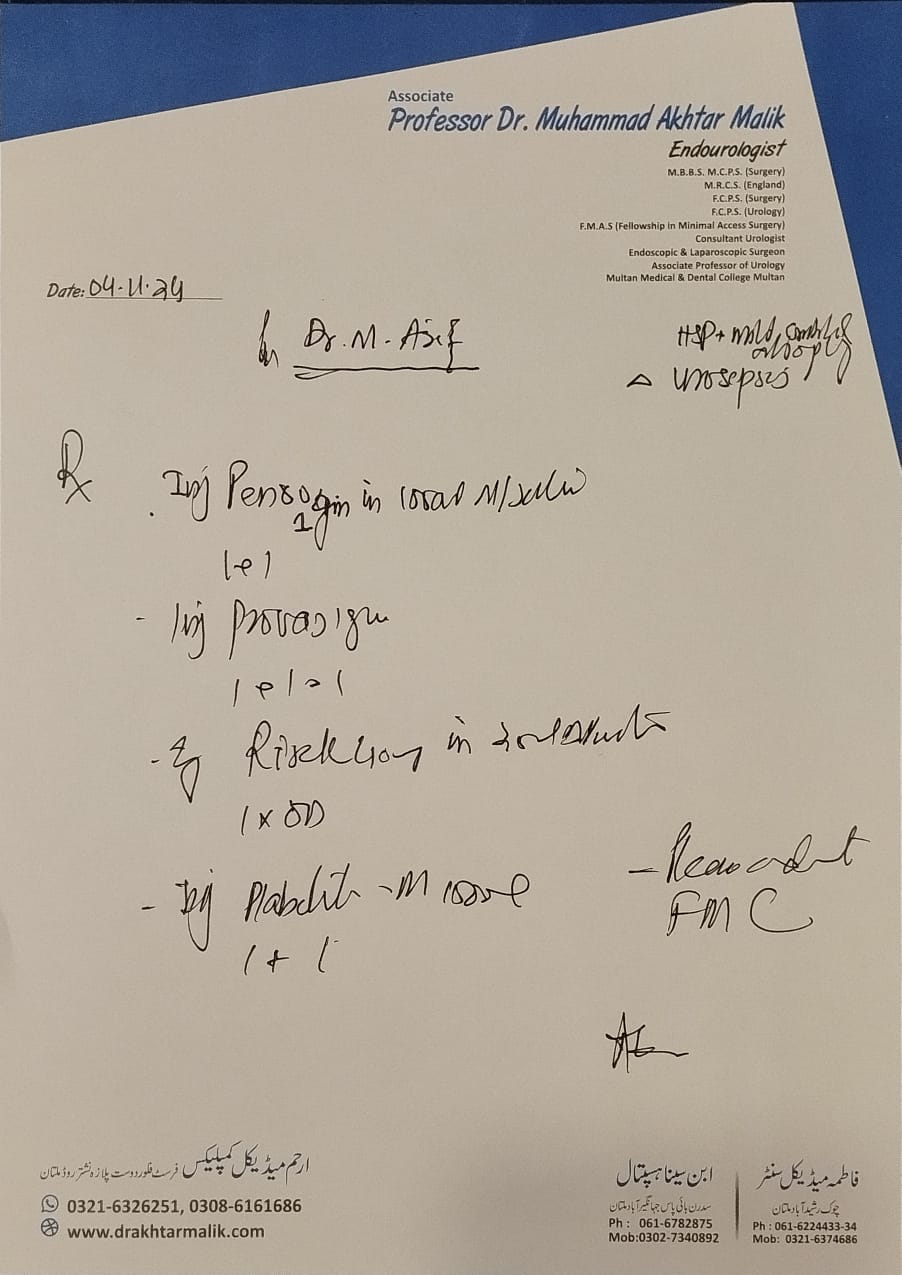 Associate
Professor Dr. Muhammad Akhtar Malik
Endourologist
M.B.B.S. M.C.P.S. (Surgery)
M.R.C.S. (England)
F.C.P.S. (Surgery)
F.C.P.S. (Urology)
F.M.A.S (Fellowship in Minimal Access Surgery)
Consultant Urologist
Endoscopic & Laparoscopic Surgeon
Associate Professor of Urology
Multan Medical & Dental College Multan
Date: 04-11-24
Dr. M. Asif
HSP + mild
△ Urosepsis
Rx
Inj
1gm in 100ml N/
Inj 1gm
Risek 40mg in
1 x OD
Inj 100ml
1 + 1
FMC
ارحم میڈیکل کمپلیکس فرسٹ فلور دوست پلازہ نشتر روڈ ملتان
0321-6326251, 0308-6161686
www.drakhtarmalik.com
ابن سینا ہسپتال
سدرن بائی پاس جہانگیر آباد ملتان
Ph : 061-6782875
Mob:0302-7340892
فاطمہ میڈیکل سنٹر
چوک رشید آباد ملتان
Ph : 061-6224433-34
Mob: 0321-6374686